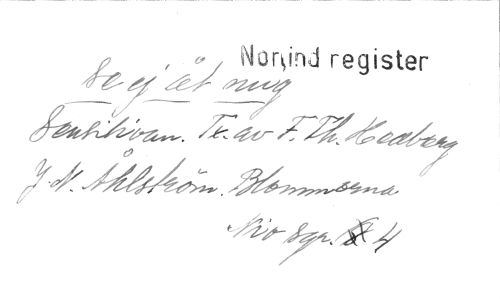 Norrlind register
Se ej åt mig
Sensitivan. Tx. av F. Th. Hedberg
J. N. Åhlström. Blommorna
Nio sgr. 4